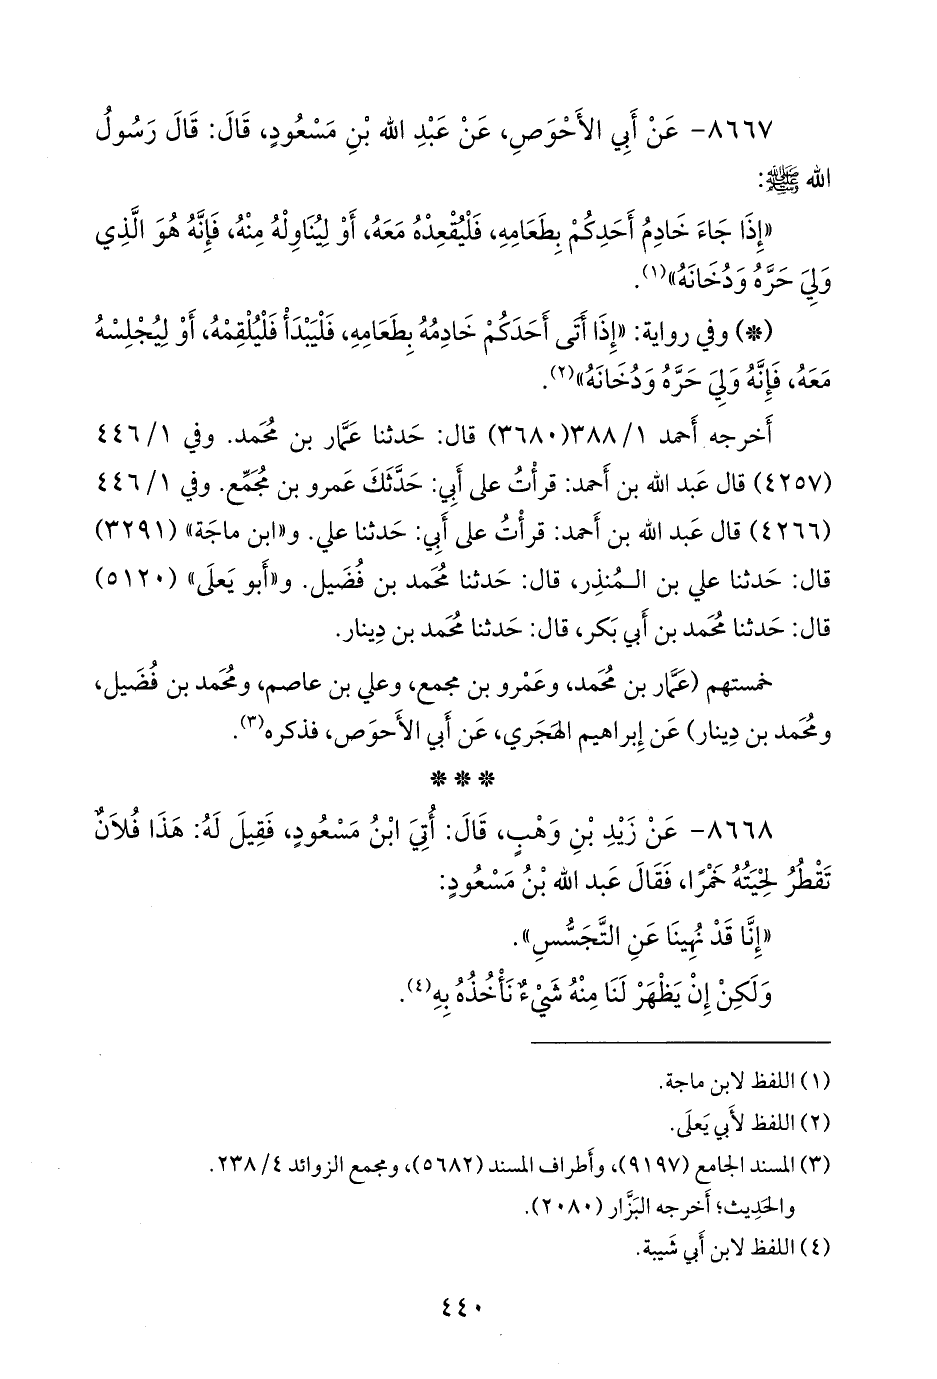 ٨٦٦٧- عَنْ أَبِي الأَحْوَصِ، عَنْ عَبْدِ الله بْنِ مَسْعُودٍ، قَالَ: قَالَ رَسُولُ
الله ﷺ:
«إِذَا جَاءَ خَادِمُ أَحَدِكُمْ بِطَعَامِهِ، فَلْيُقْعِدْهُ مَعَهُ، أَوْ لِيُنَاوِلْهُ مِنْهُ، فَإِنَّهُ هُوَ الَّذِي
وَلِيَ حَرَّهُ وَدُخَانَهُ»(١).
(*) وفي رواية: «إِذَا أَتَى أَحَدَكُمْ خَادِمُهُ بِطَعَامِهِ، فَلْيَبْدَأْ فَلْيُلْقِمْهُ، أَوْ لِيُجْلِسْهُ
مَعَهُ، فَإِنَّهُ وَلِيَ حَرَّهُ وَدُخَانَهُ»(٢).
أَخرجه أَحمد ١/ ٣٨٨(٣٦٨٠) قال: حَدثنا عَمَّار بن مُحَمد. وفي ١/ ٤٤٦
(٤٢٥٧) قال عَبد الله بن أَحمد: قرأْتُ على أَبي: حَدَّثَكَ عَمرو بن مُجَمِّع. وفي ١/ ٤٤٦
(٤٢٦٦) قال عَبد الله بن أَحمد: قرأْتُ على أَبي: حَدثنا علي. و«ابن ماجَة» (٣٢٩١)
قال: حَدثنا علي بن المُنذِر، قال: حَدثنا مُحَمد بن فُضَيل. و«أَبو يَعلَى» (٥١٢٠)
قال: حَدثنا مُحَمد بن أَبي بَكر، قال: حَدثنا مُحَمد بن دِينار.
خمستهم (عَمَّار بن مُحَمد، وعَمْرو بن مجمع، وعلي بن عاصم، ومُحَمد بن فُضَيل،
ومُحَمد بن دِينار) عَن إِبراهيم الهَجَري، عَن أَبي الأَحوَص، فذكره(٣).
* * *
٨٦٦٨- عَنْ زَيْدِ بْنِ وَهْبٍ، قَالَ: أُتِيَ ابْنُ مَسْعُودٍ، فَقِيلَ لَهُ: هَذَا فُلاَنٌ
تَقْطُرُ لِحْيَتُهُ خَمْرًا، فَقَالَ عَبد الله بْنُ مَسْعُودٍ:
«إِنَّا قَدْ نُهِينَا عَنِ التَّجَسُّسِ».
وَلَكِنْ إِنْ يَظْهَرْ لَنَا مِنْهُ شَيْءٌ نَأْخُذْهُ بِهِ(٤).
(١) اللفظ لابن ماجة.
(٢) اللفظ لأَبي يَعلَى.
(٣) المسند الجامع (٩١٩٧)، وأَطراف المسند (٥٦٨٢)، ومجمع الزوائد ٤/ ٢٣٨.
والحَدِيث؛ أَخرجه البَزَّار (٢٠٨٠).
(٤) اللفظ لابن أَبي شَيبة.
٤٤٠